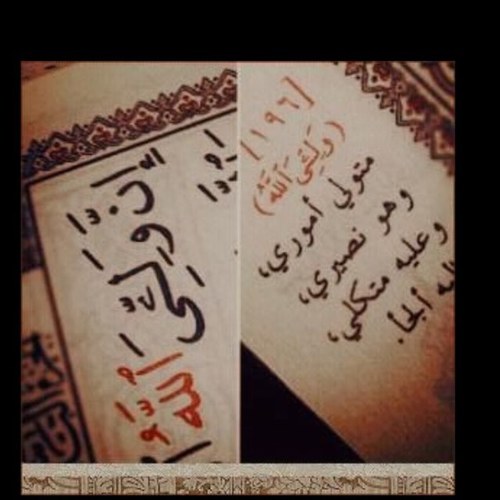 إِنَّ وَلِـِّۧيَ ٱللَّهُ
[١٩٦]
(وَلِيِّيَ اللَّهُ)
متولي أموري،
وهو نصيري،
وعليه متكلي،
ألجأ.